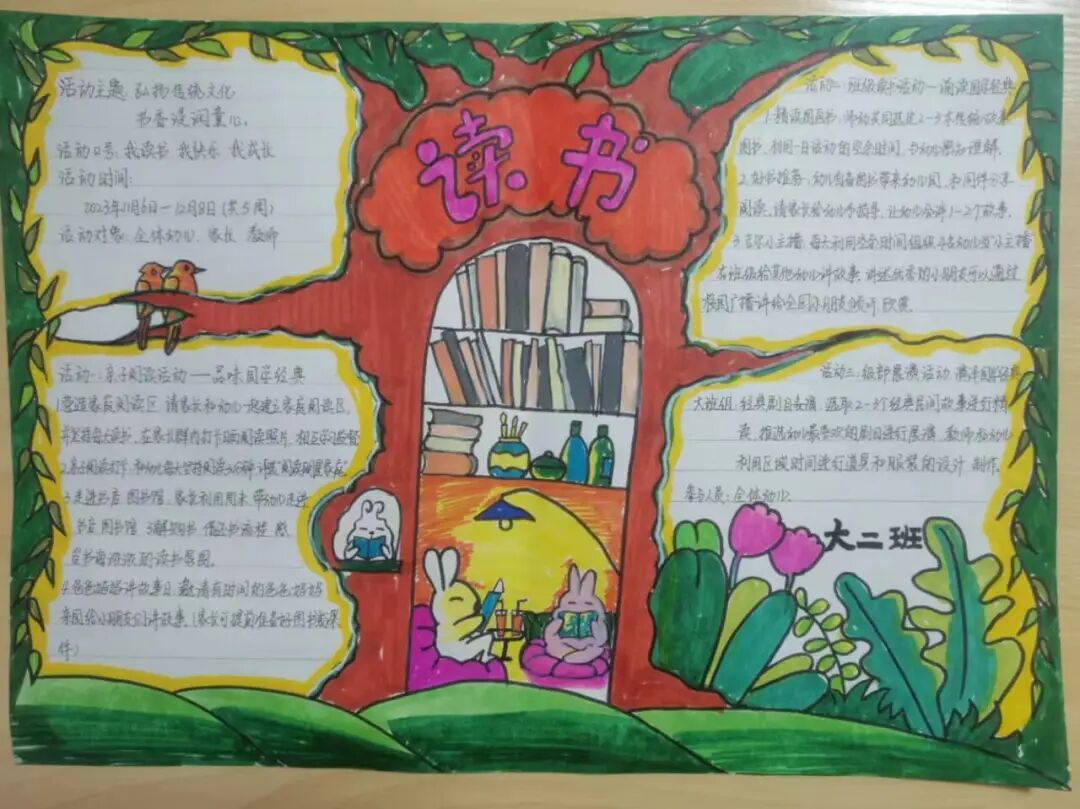 读书
活动主题: 弘扬传统文化
书香浸润童心。
活动口号: 我读书 我快乐 我成长
活动时间:
2023年11月6日—12月8日 (共5周)
活动对象: 全体幼儿、家长、教师
活动一: 亲子阅读活动——品味国学经典
1.营造家庭阅读区,请家长和幼儿一起建立家庭阅读区,
并坚持每天读书,在家长群内打卡晒阅读照片,相互学习监督
2.亲子阅读打卡 和幼儿每天坚持阅读30分钟 评选"阅读明星家庭"
3.走进书店 图书馆,家长利用周末 带幼儿走进
书店 图书馆 了解购书 借还书流程 感
受书海浓浓的读书氛围。
4.爸爸妈妈讲故事日,邀请有时间的爸爸妈妈
来园给小朋友们讲故事。(家长可提前准备好图书或课
件)
活动二 班级读书活动—诵读国学经典
1.精读图画书,师幼共同选定2-3本传统故事
图书,利用一日活动的空余时间,与幼儿 理解。
2.好书推荐: 幼儿自备图书带来幼儿园,和同伴分享
阅读。请家长给幼儿予指导,让幼儿会讲1-2个故事。
3. 小主播,每天利用空余时间组织4名幼儿当小主播
在班级给其他幼儿讲故事,讲述优秀的小朋友可以通过
校园广播讲给全园小朋友倾听、欣赏。
活动三: 级部展演活动,演绎国学经典
大班组: 经典剧目表演,选取2-3个经典民间故事进行精
读,推选幼儿最喜欢的剧目进行展演,教师和幼儿
利用区域时间进行道具和服装的设计、制作。
参与人员: 全体幼儿
大二班